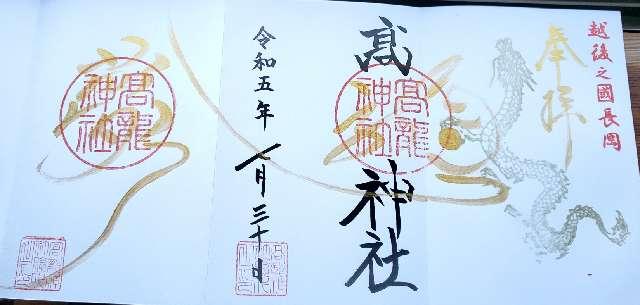 越後之國長岡
奉拝
高
神社
高龍
神社
令和五年
七月三十日
高龍
神社